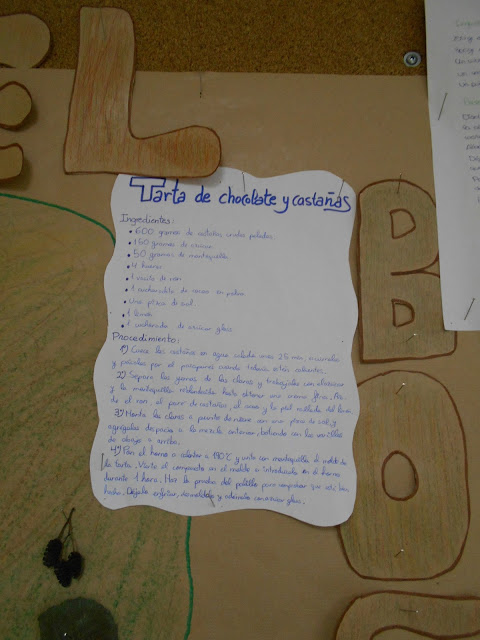 L
Tarta de chocolate y castañas
Ingredientes:
• 600 gramos de castañas crudas peladas
• 150 gramos de azúcar
• 50 gramos de mantequilla
• 4 huevos
• 1 vasito de ron
• 1 cucharadita de cacao en polvo
• Una pizca de sal
• 1 limón
• 1 cucharada de azúcar glass
Procedimiento:
1º) Cuece las castañas en agua salada unos 25 min, escúrrelas
y pásalas por el pasapurés cuando todavía estén calientes.
2º) Separa las yemas de las claras y trabájalas con el azúcar
y la mantequilla reblandecida hasta obtener una crema fina. Aña-
de el ron, el puré de castañas, el cacao y la piel rallada del limón.
3º) Monta las claras a punto de nieve con una pizca de sal, y
agrégalas despacio a la mezcla anterior, batiendo con las varillas
de abajo a arriba.
4º) Pon el horno a calentar a 180ºC y unta con mantequilla el molde de
la tarta. Vierte el compuesto en el molde e introdúcelo en el horno
durante 1 hora. Haz la prueba del palillo para comprobar que está bien
hecho. Déjalo enfriar, desmóldalo y adórnalo con azúcar glass.
B
O